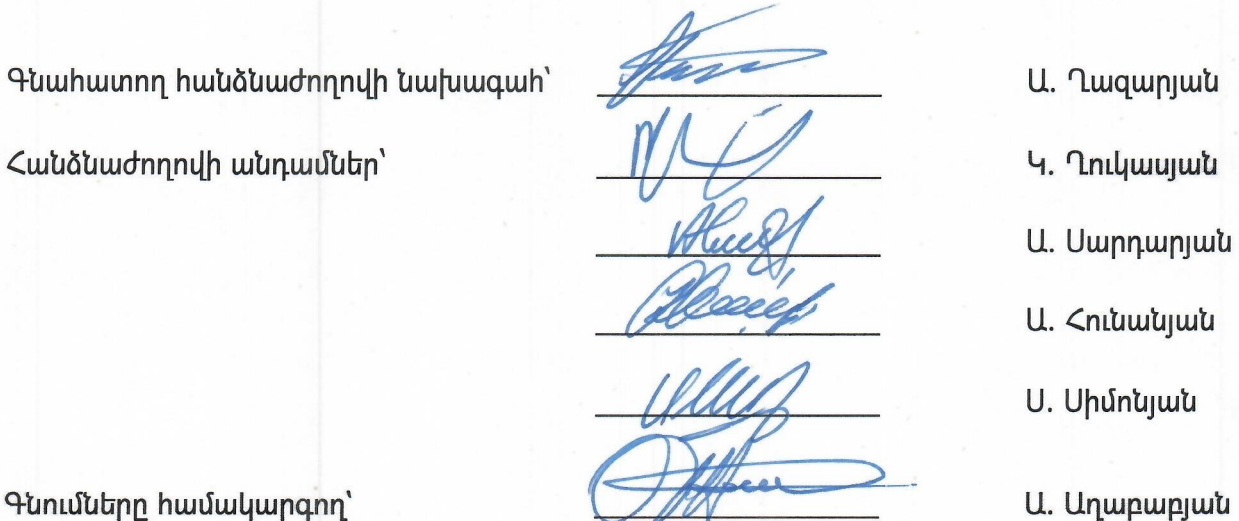 Գնահատող հանձնաժողովի նախագահ՝ Ա. Ղազարյան
Հանձնաժողովի անդամներ՝ Կ. Ղուկասյան
Ա. Սարդարյան
Ա. Հունանյան
Ս. Սիմոնյան
Գնումները համակարգող՝ Ա. Աղաբաբյան